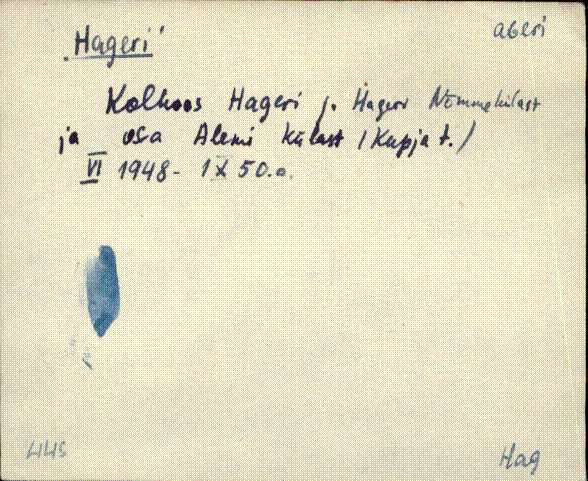 aberi
„Hageri”
Kolhoos Hageri j. Hageri Nõmmekülast
ja osa Alemi külast /Kupja t./
VI 1948 - IX 50.a.
445
Hag